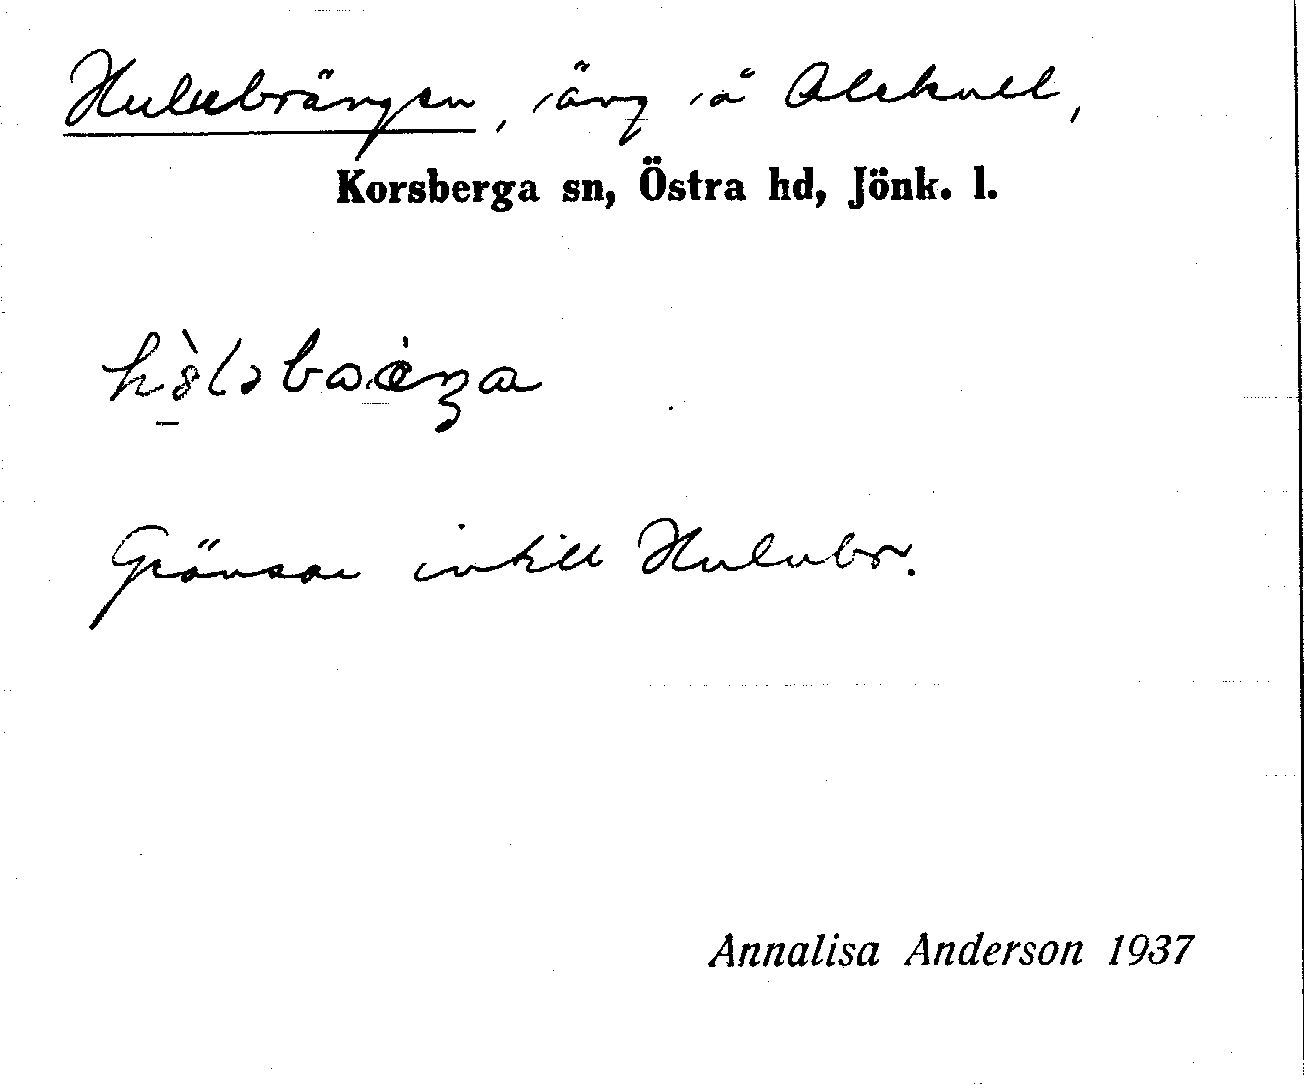 Hulubrängen, äng å Alekull,
Korsberga sn, Östra hd, Jönk. l.
Gränsar intill Hulubr.
Annalisa Anderson 1937